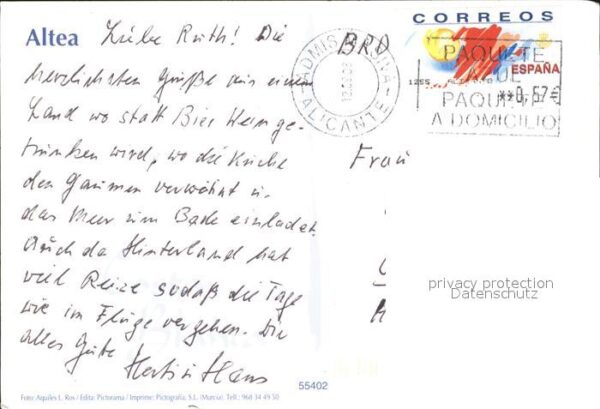 Altea
Liebe Ruth! Die
herzlichsten Grüße aus einem
Land wo statt Bier Wein ge-
trunken wird, wo die Küche
den Gaumen verwöhnt u.
das Meer zum Bade einladet.
Auch das Hinterland hat
viel Reize sodaß die Tage
wie im Fluge vergehen. Dir
alles Gute
Hans
BRD
Frau
ADMIS
ALICANTE
CORREOS
ESPAÑA
PAQUETE
AZUL
**0,57€
PAQUETE
A DOMICILIO
privacy protection
Datenschutz
Foto: Aquiles L. Ros / Edita: Pictorama / Imprime: Pictografía, S.L. (Murcia). Tell.: 968 34 49 50
55402